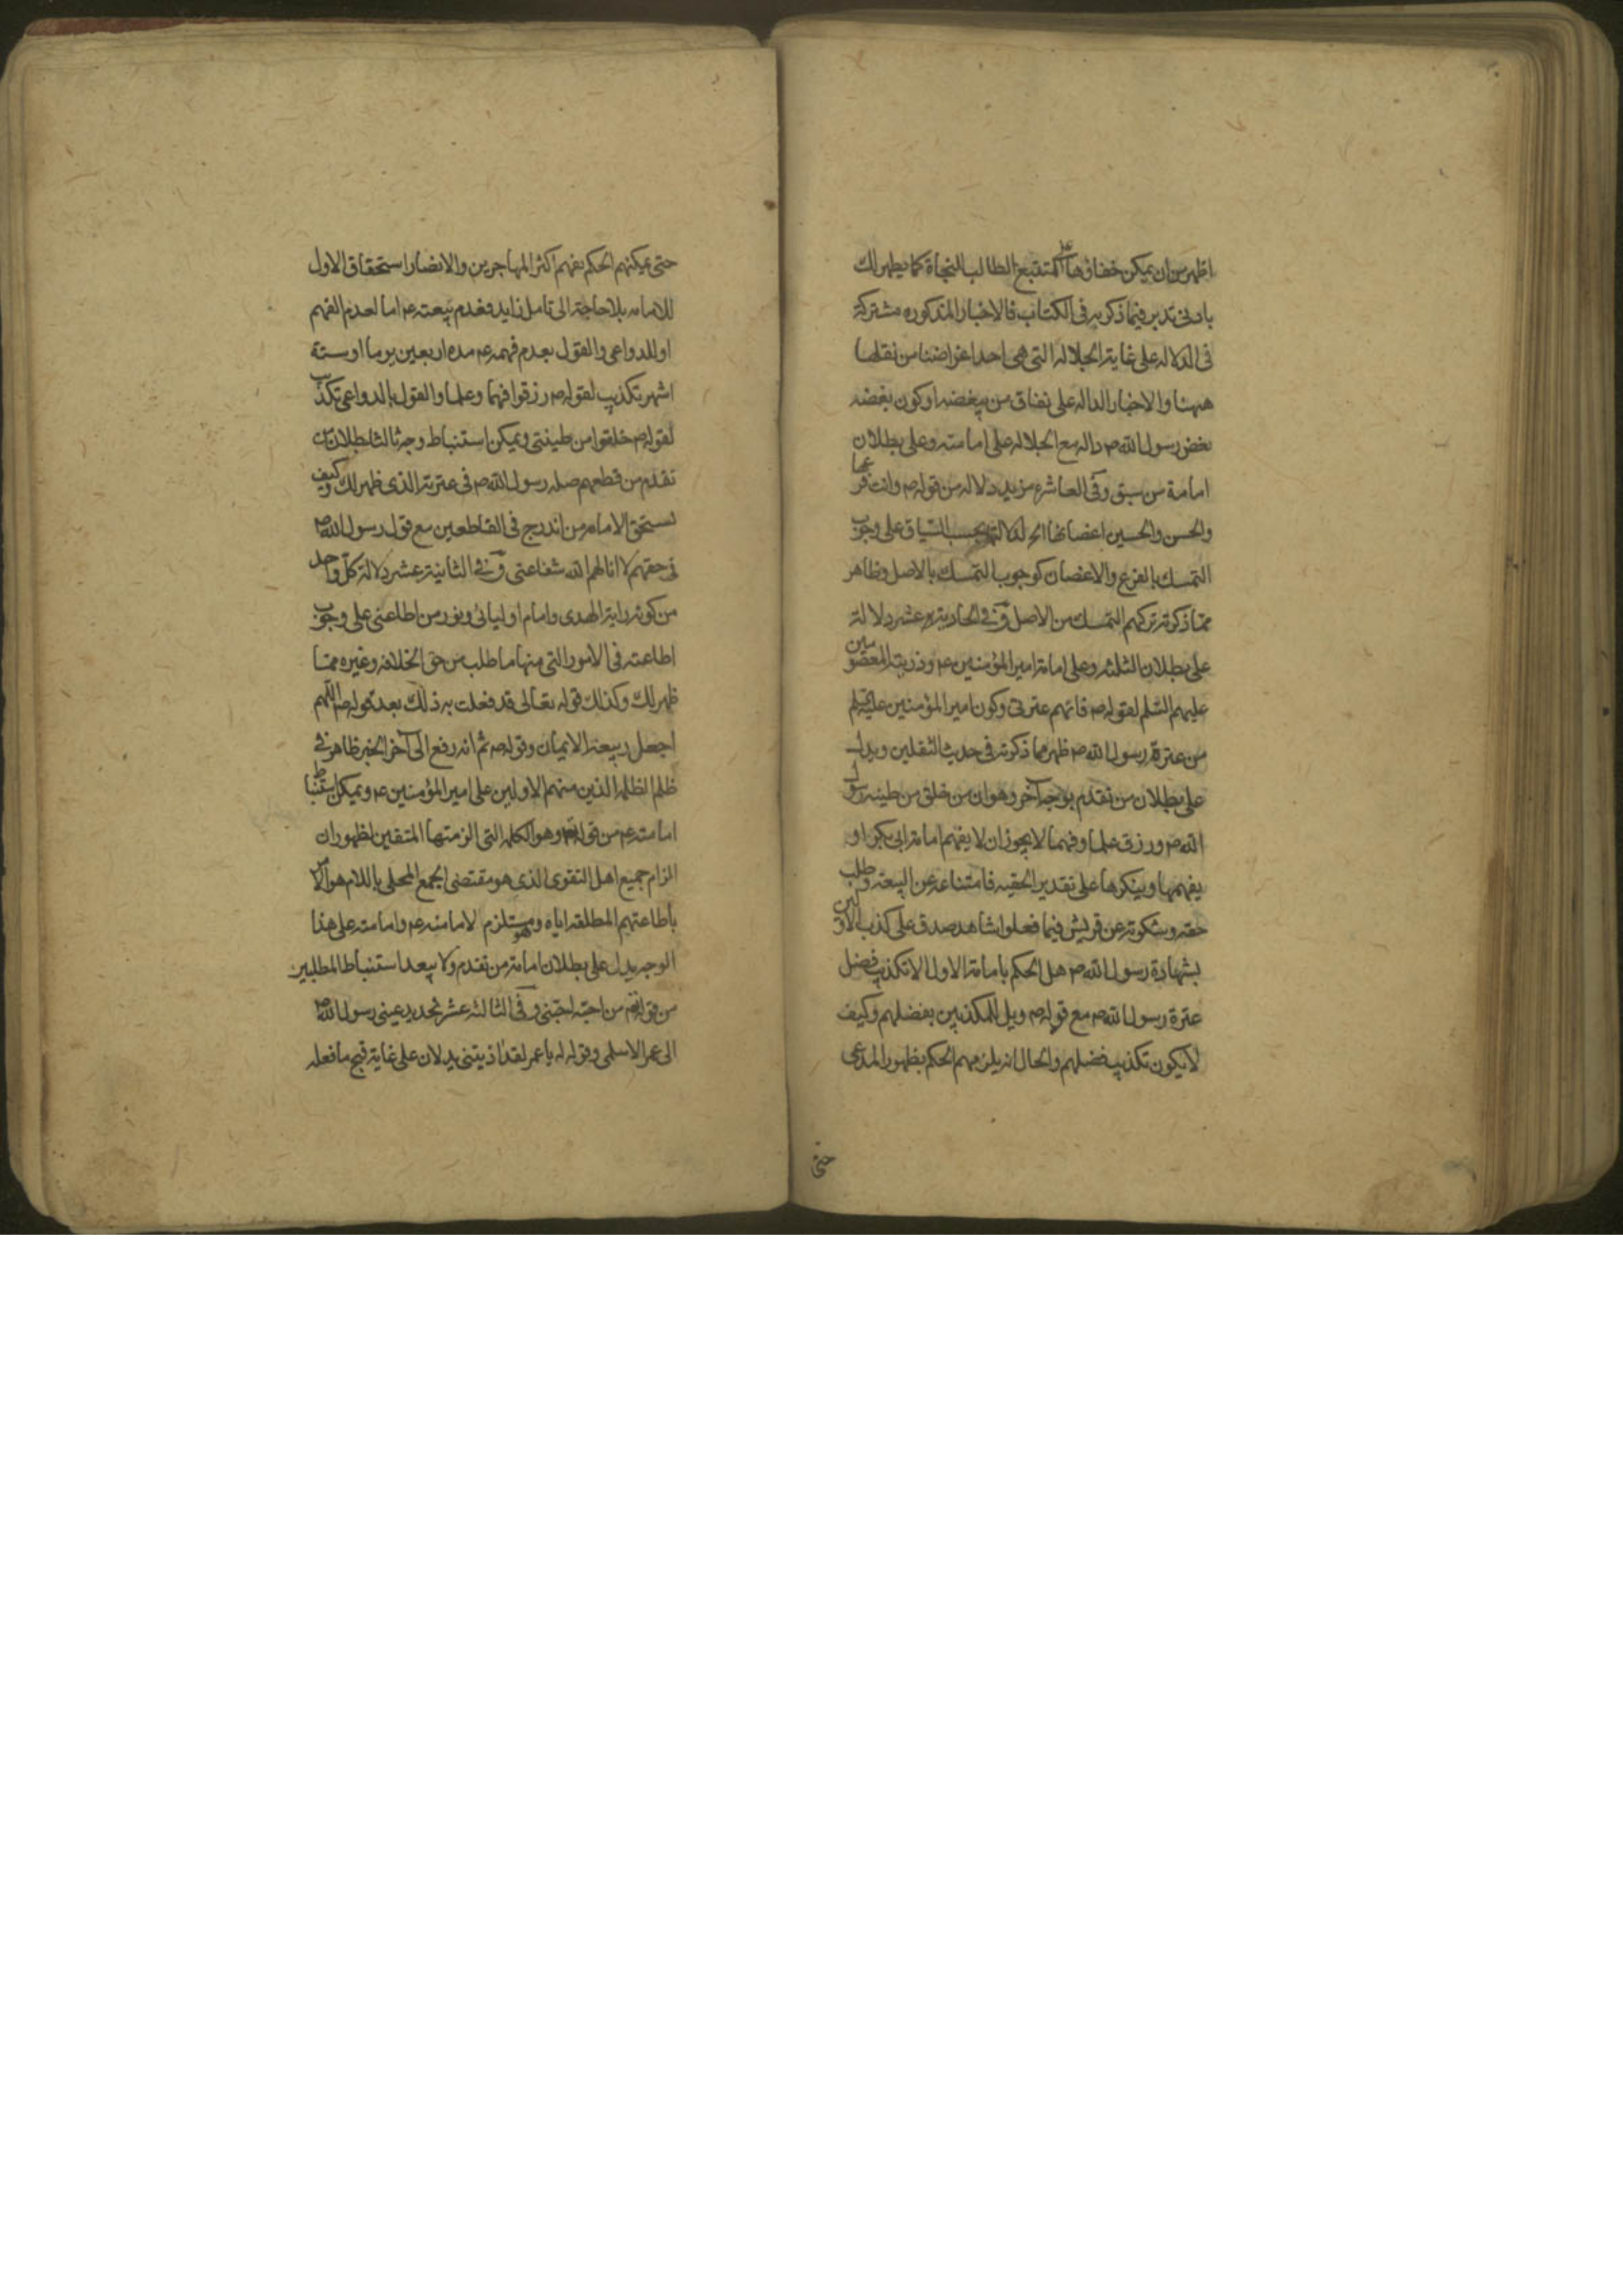 اظهر من ان يمكن خفاؤها على المتتبع الطالب للنجاة كما يظهر لك
بادنى تدبر فيما ذكرته في الكتاب فالاخبار المذكوره مشتركة
في الدلاله على غاية الجلاله التي هي احد اغراضنا من نقلها
ههنا والاخبار الداله على نفاق من يبغضه او كون بغضه
بغض رسول الله ص داله مع الجلاله على امامته وعلى بطلان
امامة من سبق وفي العاشره مزيد دلاله من قوله ص وانت فرعها
والحسن والحسين اغصانها الخ لدلالته بحسب السياق على وجوب
التمسك بالفرع والاغصان كوجوب التمسك بالاصل وظاهر
مما ذكرته تركهم التمسك من الاصل وفي الحادية عشر دلالة
على بطلان الثلثه وعلى امامة امير المؤمنين عم وذريته المعصومين
عليهم السلم لقوله ص فانهم عترتي وكون امير المؤمنين عليه السلم
من عترة رسول الله ص ظهر مما ذكرته في حديث الثقلين ويدل
على بطلان من تقدم بوجه آخر وهو ان من خلق من طينه رسول
الله ص ورزق علما وفهما لا يجوز ان لا يفهم امامة ابي بكر او
يفهمها وينكرها على تقدير الحقيه فامتناعه عن البيعة وطلب
حقه وشكوته عن قريش فيما فعلوا شاهد صدق على كذب الاولين
بشهادة رسول الله ص هل الحكم بامامة الاول الا تكذيب فضل
عترة رسول الله ص مع قوله ص ويل للمكذبين بفضلهم وكيف
لا يكون تكذيب فضلهم والحال انه يلزمهم الحكم بظهور المدعى
حتى
حتى يمكنهم الحكم بفهم اكثر المهاجرين والانصار استحقاق الاول
للامامه بلا حاجة الى تامل زايد فعدم بيعته عم اما لعدم الفهم
او للدواعي والقول بعدم فهمه عم مده اربعين يوما او ستة
اشهر تكذيب لقوله ص رزقوا فهما وعلما والقول بالدواعي تكذيب
لقوله ص خلقوا من طينتي ويمكن استنباط وجه ثالث لبطلان من
تقدم من قطعهم صله رسول الله ص في عترته الذي ظهر لك وكيف
يستحق الامامه من اندرج في القاطعين مع قول رسول الله ص
في حقهم لا انالهم الله شفاعتي وفي الثانية عشر دلالة كل واحد
من كونه راية الهدى وامام اوليائي ونور من اطاعني على وجوب
اطاعته في الامور التي منها ما طلب من حق الخلافه وغيره مما
ظهر لك وكذلك قوله تعالى قد فعلت به ذلك بعد قوله ص اللهم
اجعل ربيعه الايمان وقوله ص ثم انه رفع الى آخر الخبر ظاهر في
ظلم الظلمه الذين منهم الاولين على امير المؤمنين عم ويمكن استنباط
امامته عم من قوله تعم وهو الكلمه التي الزمتها المتقين لظهور ان
الزام جميع اهل التقوى الذي هو مقتضى الجمع المحلى باللام هو الامر
باطاعتهم المطلقه اياه وهو مستلزم لامامته عم وامامته على هذا
الوجه يدل على بطلان امامة من تقدم ولا يبعد استنباط المطلبين
من قوله تعم من احبه احبني وفي الثالثه عشر تحديد عيني رسول الله ص
الى عمر الاسلمي وقوله له يا عمر لقد اذيتني يدلان على غاية قبح ما فعله